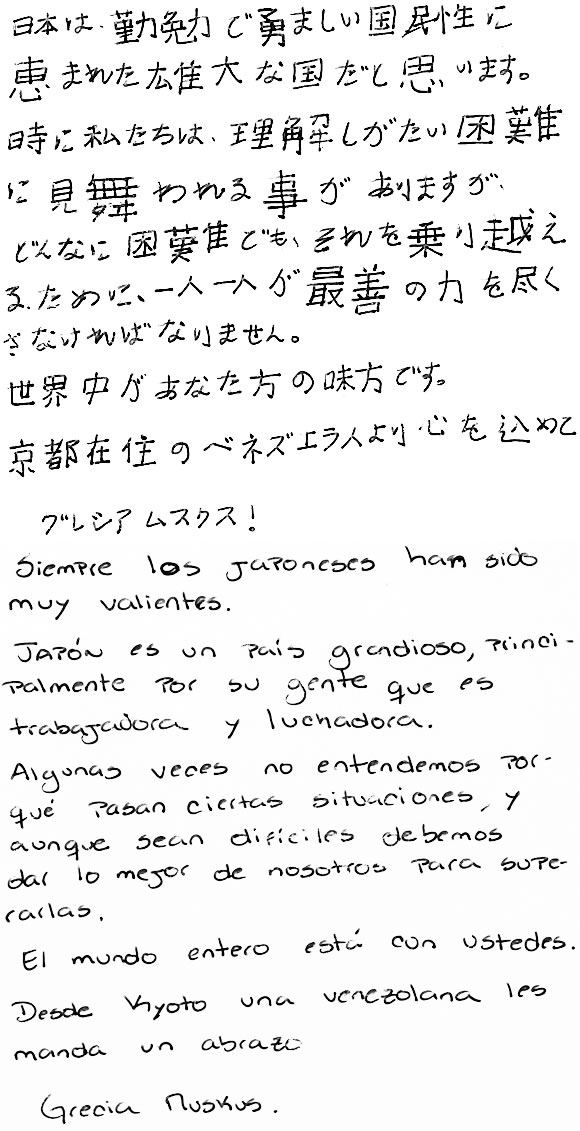 日本は、勤勉力で勇ましい国民性に
恵まれた雄大な国だと思います。
時に私たちは、理解しがたい困難
に見舞われる事がありますが、
どんなに困難でも、それを乗り越え
る、ために、一人一人が最善の力を尽く
さなければなりません。
世界中があなた方の味方です。
京都在住のベネズエラ人より心を込めて
グレシア ムスクス!
Siempre los japoneses han sido
muy valientes.
Japón es un país grandioso, princi-
palmente por su gente que es
trabajadora y luchadora.
Algunas veces no entendemos por-
qué pasan ciertas situaciones, y
aunque sean difíciles debemos
dar lo mejor de nosotros para supe-
rarlas.
El mundo entero está con ustedes.
Desde Kyoto una venezolana les
manda un abrazo
Grecia Muskus.